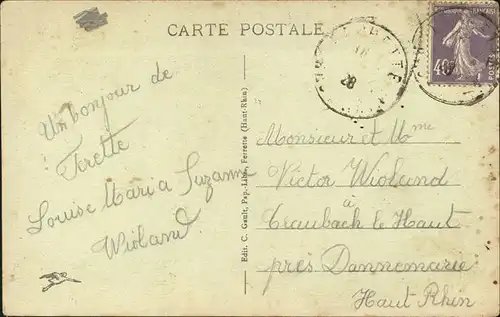 CARTE POSTALE
Un bonjour de
Ferette
Louise Maria Suzanne
Wioland
Edit. C. Gault, Pap.-Libr., Ferrette (Haut-Rhin)
Monsieur et Mme
Victor Wioland
à
Traubach le Haut
près Dannemarie
Haut Rhin
FERRETTE
28
40c